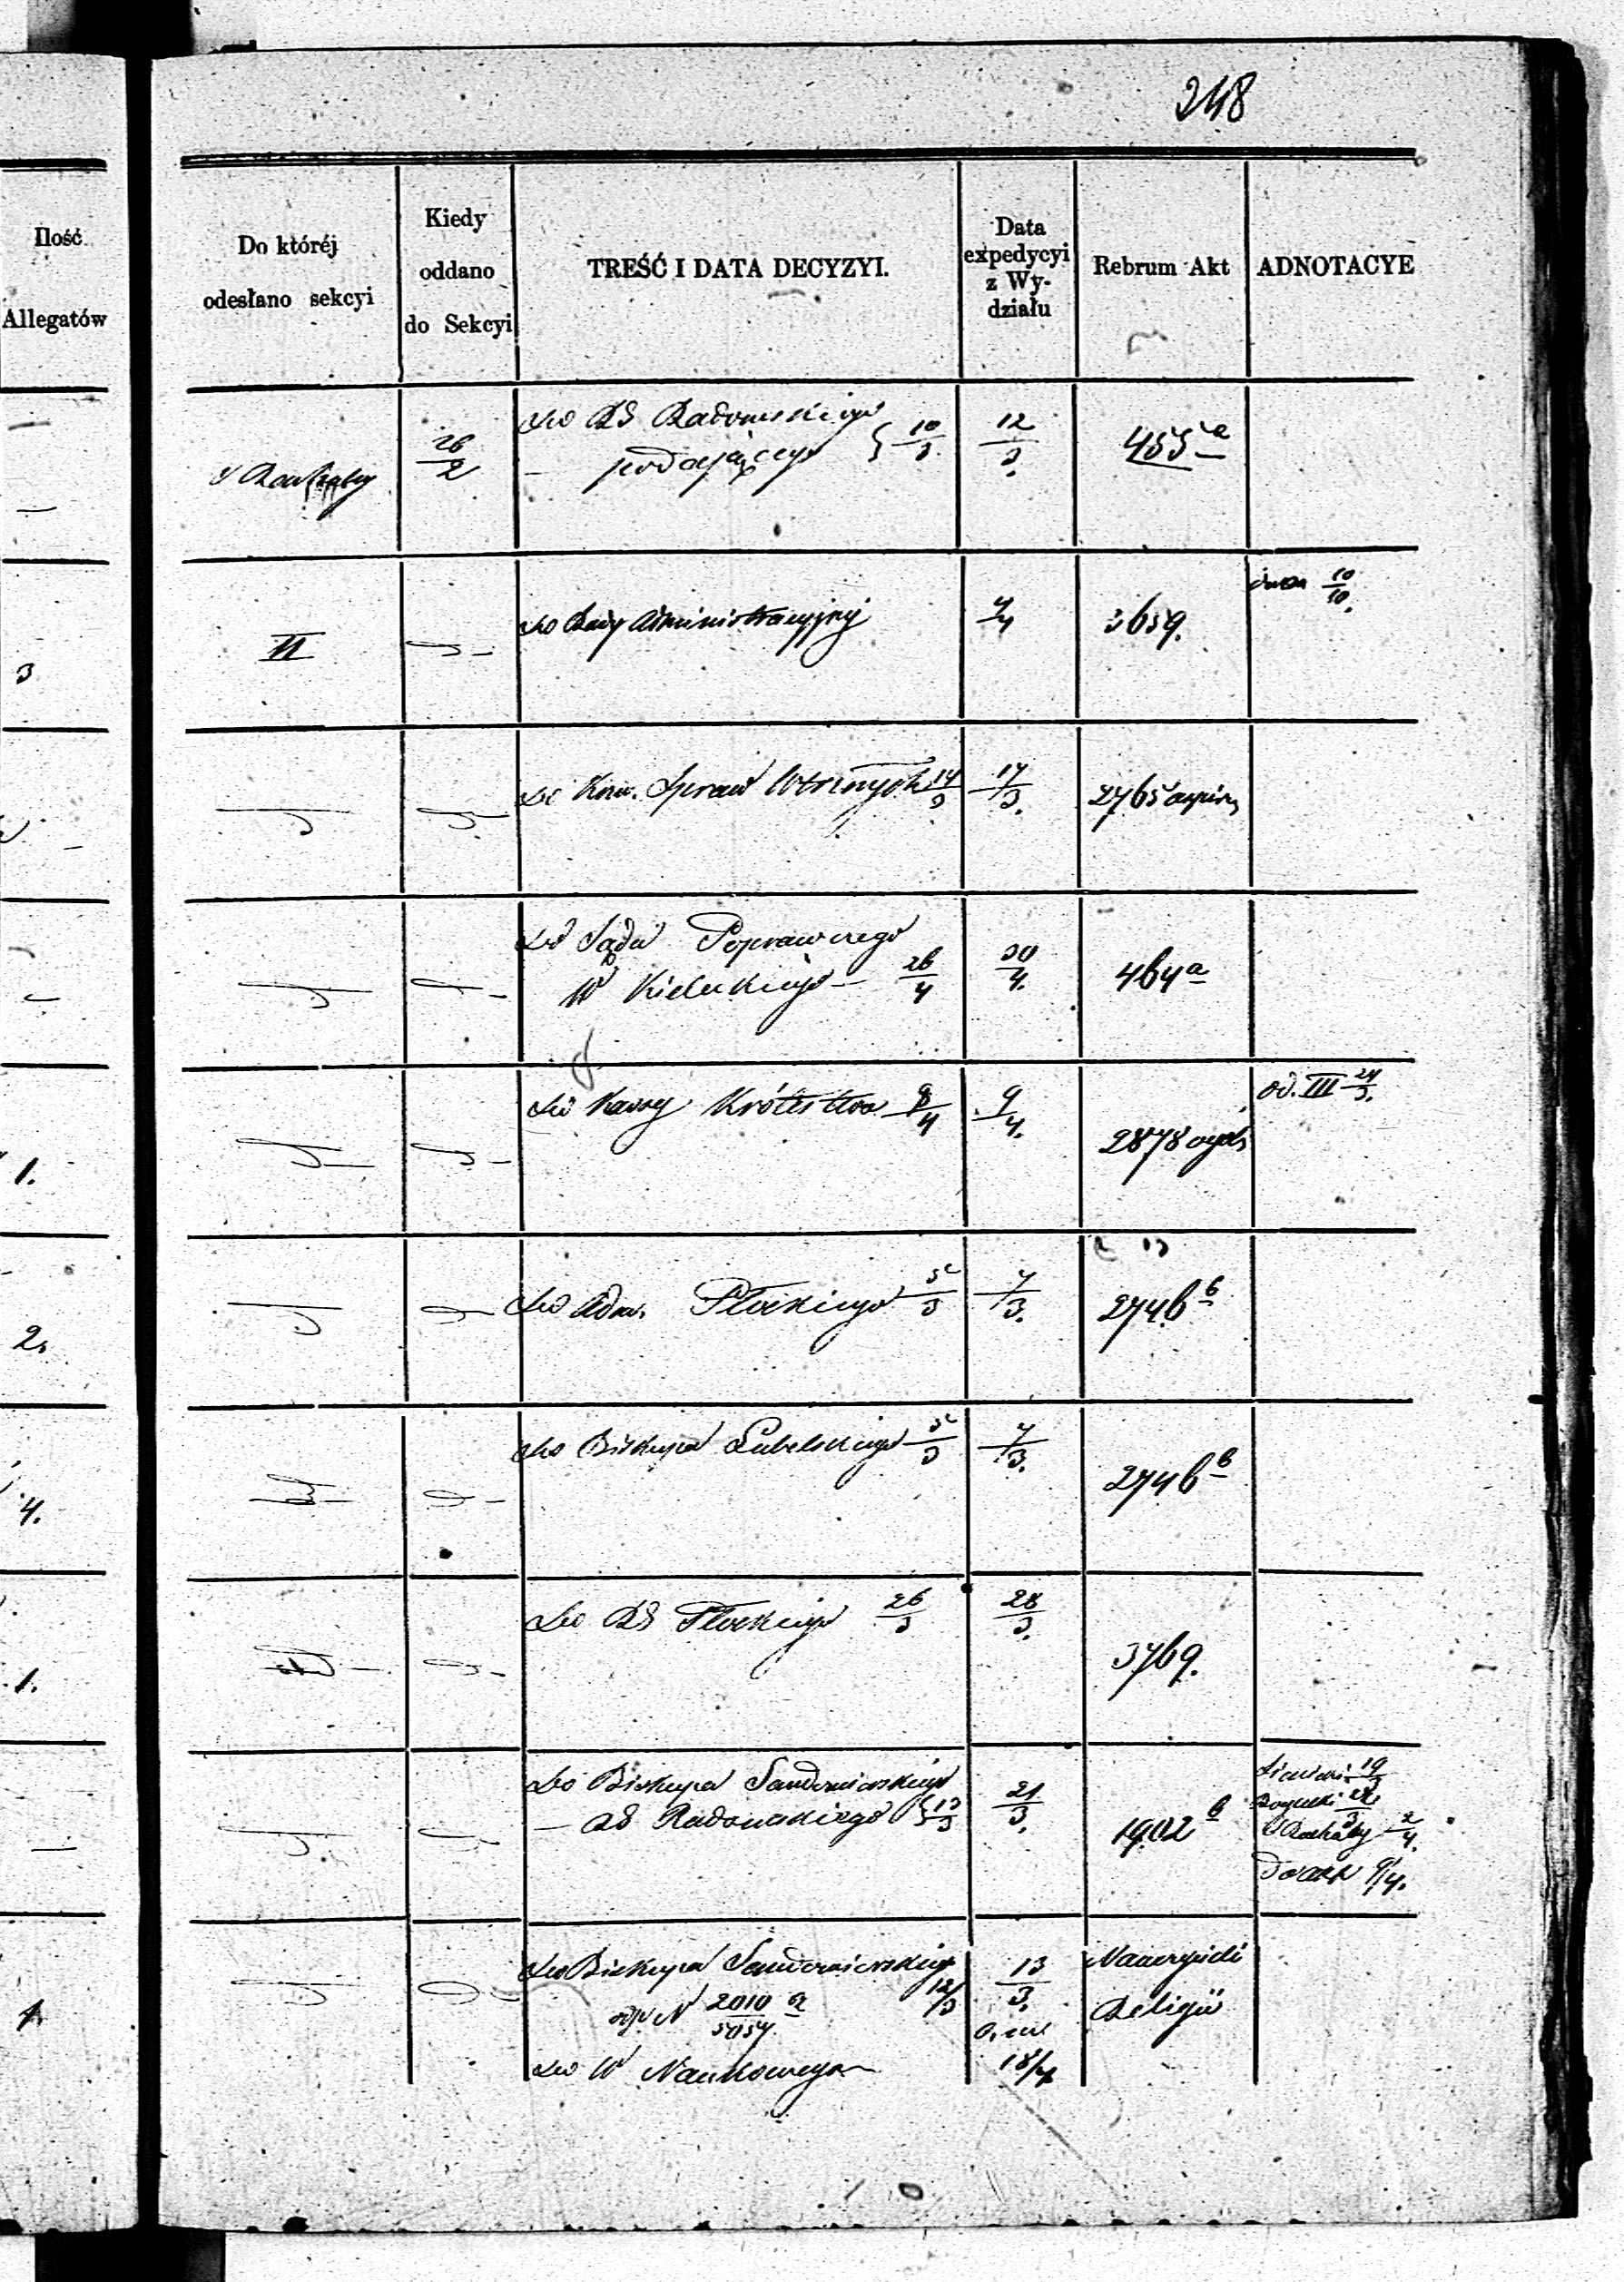 248
Ilość
Allegatów
Do któréj
odesłano sekcyi
Kiedy
oddano
do Sekcyi
TREŚĆ I DATA DECYZYI.
Data
expedycyi
z Wy-
działu
Rebrum Akt
ADNOTACYE
26/2
Do RG Radomskiego
podającego } 10/3
12/3.
455a
3
II
Do Rady Administracyjnej
4/4
3659.
10/10.
Do Kom. Spraw Wewnętrznych 14/3
17/3.
2765
Do Sądu Poprawczego
W Kieleckiego 26/4
30/4.
464a
1.
Do Kassy Królestwa 8/4
9/4.
2878
od. III 24/3.
2.
Do Adm. Płockiego 5/3
7/3.
2746b
4.
Do Biskupa Lubelskiego 5/3
7/3.
2746b
1.
Do RG Płockiego 26/3
28/3.
3769.
Do Biskupa Sandomierskiego
– RG Radomskiego } 13/3
21/3.
1902b
19/3
2/4.
9/4.
1
Do Biskupa Sandomierskiego
12/3
N 2010
13/3.
Religii
Do W Naukowego
18/4